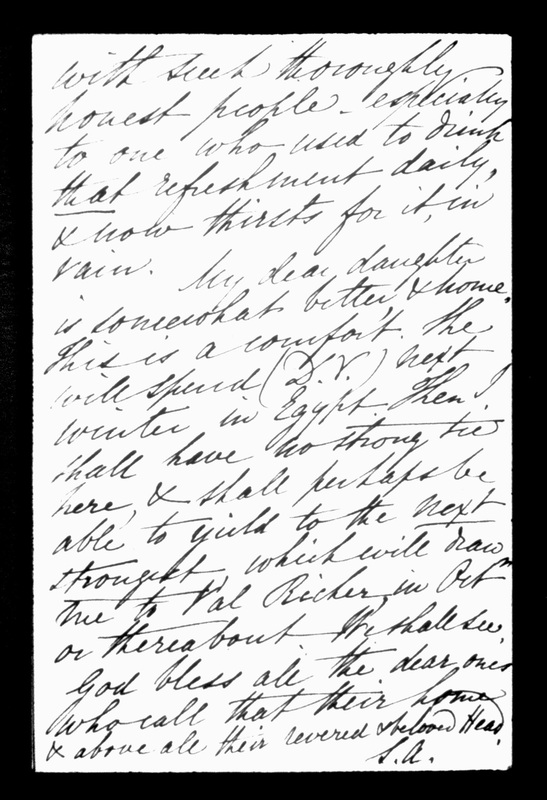 with such thoroughly
honest people - especially
to one who used to drink
that refreshment daily,
& now thirsts for it, in
vain. My dear daughter
is somewhat better, & home.
This is a comfort. She
will spend (D.V.) next
winter in Egypt. Then I
shall have no strong tie
here, & shall perhaps be
able to yield to the next
strongest, which will draw
me to Val Richer in Octr.
or thereabout. We shall see.
God bless all the dear ones
who call that their home
& above all their revered & beloved Head.
S.A.